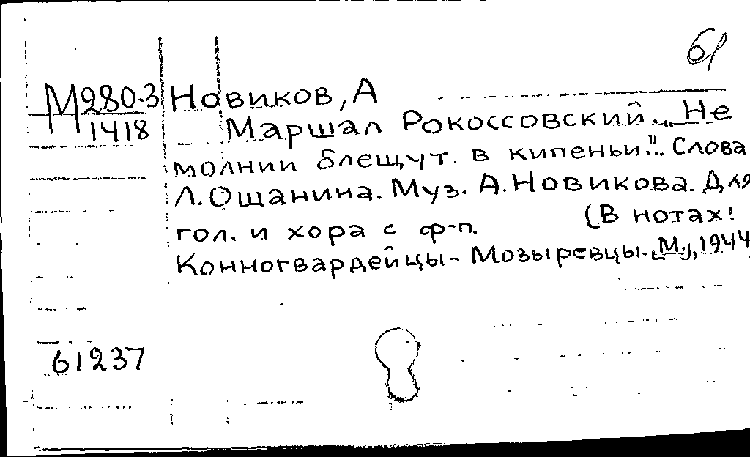 61
М280-3 Новиков, А
1418 Маршал Рокоссовский. „Не
молнии блещут в кипеньи.." Слова
Л. Ошанина. Муз. А. Новикова. Для
гол. и хора с ф-п. (В нотах:
Конногвардейцы-Мозыревцы. М., 1944
61237